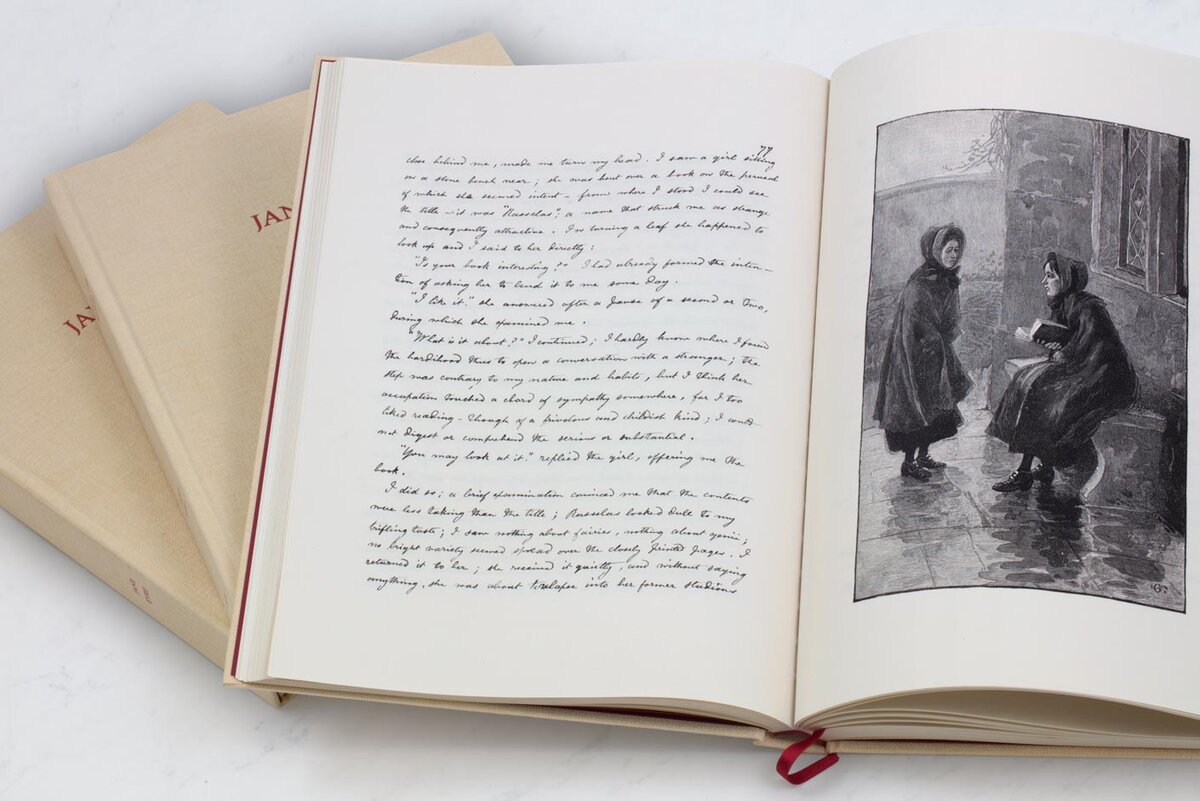 JAN
JA
JANE
EYRE
77
close behind me, made me turn my head. I saw a girl sitting
on a stone bench near; she was bent over a book on the perusal
of which she seemed intent – from where I stood I could see
the title – it was "Rasselas"; a name that struck me as strange
and consequently attractive. In turning a leaf she happened to
look up and I said to her directly:
"Is your book interesting?" I had already formed the inten-
tion of asking her to lend it to me some day.
"I like it." she answered after a pause of a second or two,
during which she examined me.
"What is it about?" I continued; I hardly know where I found
the hardihood thus to open a conversation with a stranger; the
step was contrary to my nature and habits, but I think her
occupation touched a chord of sympathy somewhere, for I too
liked reading – though of a frivolous and childish kind; I could
not digest or comprehend the serious or substantial.
"You may look at it." replied the girl, offering me the
book.
I did so; a brief examination convinced me that the contents
were less taking than the title; Rasselas looked dull to my
trifling taste; I saw nothing about fairies, nothing about genii;
no bright variety seemed spread over the closely printed pages. I
returned it to her; she received it quietly, and without saying
anything, she was about to relapse into her former studious